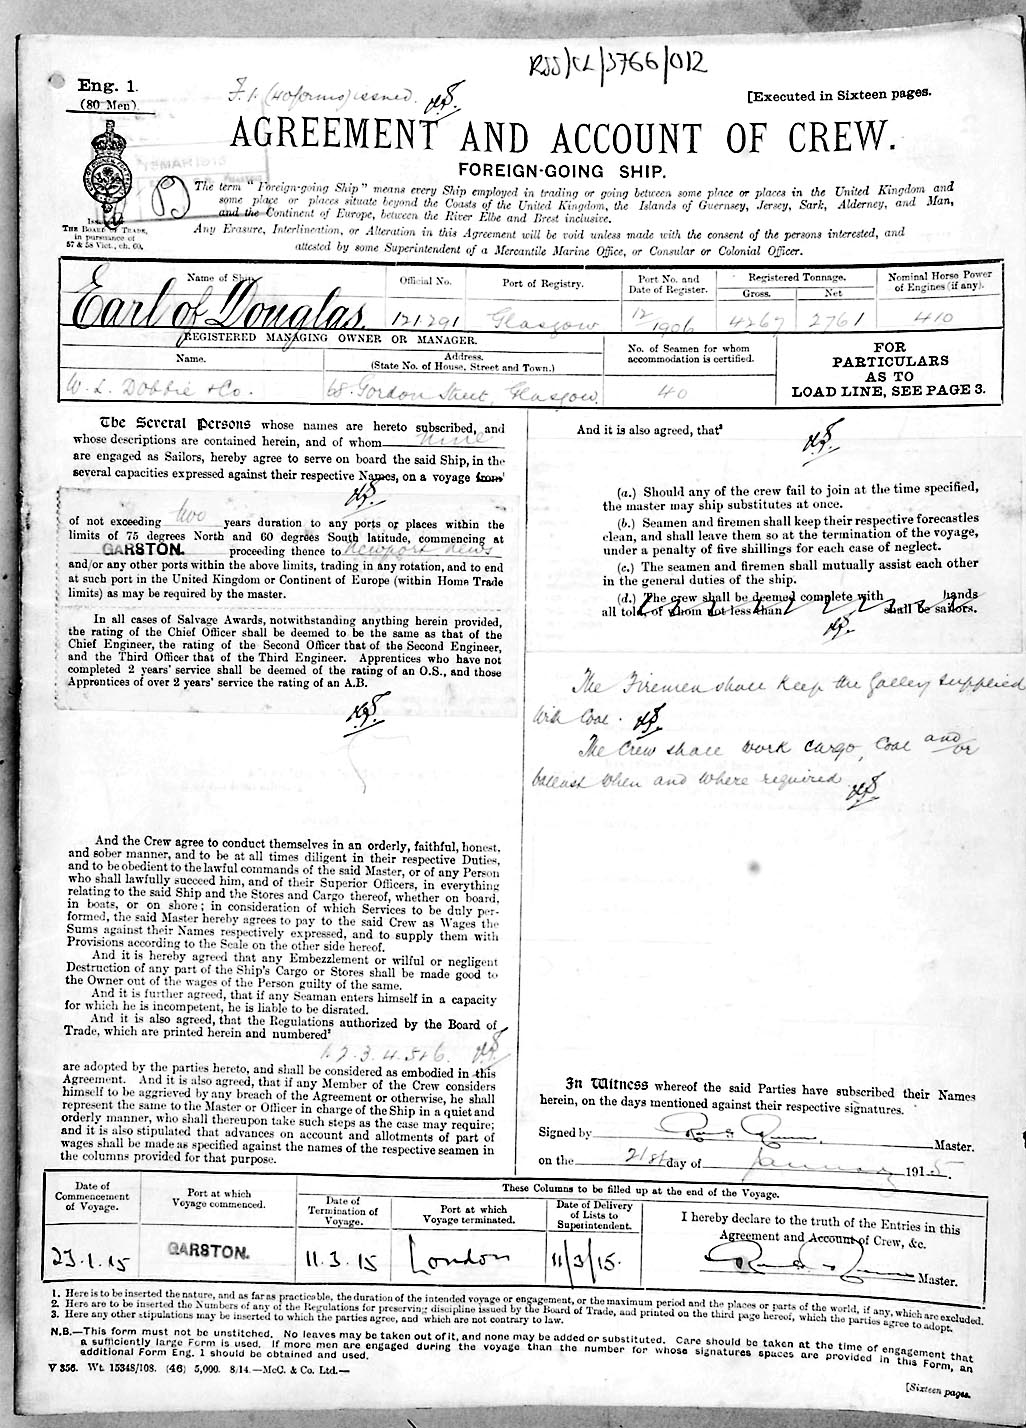 RSS/CL/3766/012
Eng. 1.
(80 Men).
F.1. (40 forms) issued.
[Executed in Sixteen pages.
AGREEMENT AND ACCOUNT OF CREW.
FOREIGN-GOING SHIP.
The term “Foreign-going Ship” means every Ship employed in trading or going between some place or places in the United Kingdom and
some place or places situate beyond the Coasts of the United Kingdom, the Islands of Guernsey, Jersey, Sark, Alderney, and Man,
and the Continent of Europe, between the River Elbe and Brest inclusive.
Any Erasure, Interlineation, or Alteration in this Agreement will be void unless made with the consent of the persons interested, and
attested by some Superintendent of a Mercantile Marine Office, or Consular or Colonial Officer.
Issued by
THE BOARD OF TRADE,
in pursuance of
57 & 58 Vict., ch. 60.
Name of Ship.
Official No.
Port of Registry.
Port No. and Date of Register.
Registered Tonnage.
Gross.
Net
Nominal Horse Power of Engines (if any).
Earl of Douglas
121291
Glasgow
12/1906
4267
2761
410
REGISTERED MANAGING OWNER OR MANAGER.
Name.
Address.
(State No. of House, Street and Town.)
No. of Seamen for whom accommodation is certified.
W. L. Dobbie & Co.
68 Gordon Street, Glasgow.
40
FOR
PARTICULARS
AS TO
LOAD LINE, SEE PAGE 3.
The Several Persons whose names are hereto subscribed, and
whose descriptions are contained herein, and of whom nine
are engaged as Sailors, hereby agree to serve on board the said Ship, in the
several capacities expressed against their respective Names, on a voyage from¹
of not exceeding two years duration to any ports or places within the
limits of 75 degrees North and 60 degrees South latitude, commencing at
GARSTON. proceeding thence to Newport News
and/or any other ports within the above limits, trading in any rotation, and to end
at such port in the United Kingdom or Continent of Europe (within Home Trade
limits) as may be required by the master.
In all cases of Salvage Awards, notwithstanding anything herein provided,
the rating of the Chief Officer shall be deemed to be the same as that of the
Chief Engineer, the rating of the Second Officer that of the Second Engineer,
and the Third Officer that of the Third Engineer. Apprentices who have not
completed 2 years' service shall be deemed of the rating of an O.S., and those
Apprentices of over 2 years' service the rating of an A.B.
And the Crew agree to conduct themselves in an orderly, faithful, honest,
and sober manner, and to be at all times diligent in their respective Duties,
and to be obedient to the lawful commands of the said Master, or of any Person
who shall lawfully succeed him, and of their Superior Officers, in everything
relating to the said Ship and the Stores and Cargo thereof, whether on board,
in boats, or on shore; in consideration of which Services to be duly per-
formed, the said Master hereby agrees to pay to the said Crew as Wages the
Sums against their Names respectively expressed, and to supply them with
Provisions according to the Scale on the other side hereof.
And it is hereby agreed that any Embezzlement or wilful or negligent
Destruction of any part of the Ship's Cargo or Stores shall be made good to
the Owner out of the wages of the Person guilty of the same.
And it is further agreed, that if any Seaman enters himself in a capacity
for which he is incompetent, he is liable to be disrated.
And it is also agreed, that the Regulations authorized by the Board of
Trade, which are printed herein and numbered²
1. 2. 3. 4. 5 & 6.
are adopted by the parties hereto, and shall be considered as embodied in this
Agreement. And it is also agreed, that if any Member of the Crew considers
himself to be aggrieved by any breach of the Agreement or otherwise, he shall
represent the same to the Master or Officer in charge of the Ship in a quiet and
orderly manner, who shall thereupon take such steps as the case may require;
and it is also stipulated that advances on account and allotments of part of
wages shall be made as specified against the names of the respective seamen in
the columns provided for that purpose.
And it is also agreed, that³
(a.) Should any of the crew fail to join at the time specified,
the master may ship substitutes at once.
(b.) Seamen and firemen shall keep their respective forecastles
clean, and shall leave them so at the termination of the voyage,
under a penalty of five shillings for each case of neglect.
(c.) The seamen and firemen shall mutually assist each other
in the general duties of the ship.
(d.) The crew shall be deemed complete with hands
all told, of whom not less than shall be sailors.
The Firemen shall keep the Galley supplied
with Coal.
The Crew shall work cargo, Coal and/or
ballast when and where required
In Witness whereof the said Parties have subscribed their Names
herein, on the days mentioned against their respective signatures.
Signed by Master.
on the 21st day of January 1915.
Date of Commencement of Voyage.
Port at which Voyage commenced.
These Columns to be filled up at the end of the Voyage.
Date of Termination of Voyage.
Port at which Voyage terminated.
Date of Delivery of Lists to Superintendent.
I hereby declare to the truth of the Entries in this
Agreement and Account of Crew, &c.
Master.
23.1.15
GARSTON.
11.3.15
London
11/3/15.
1. Here is to be inserted the nature, and as far as practicable, the duration of the intended voyage or engagement, or the maximum period and the places or parts of the world, if any, which are excluded.
2. Here are to be inserted the Numbers of any of the Regulations for preserving discipline issued by the Board of Trade, and printed on the third page hereof, which the parties agree to adopt.
3. Here any other stipulations may be inserted to which the parties agree, and which are not contrary to law.
N.B.—This form must not be unstitched. No leaves may be taken out of it, and none may be added or substituted. Care should be taken at the time of engagement that
a sufficiently large Form is used. If more men are engaged during the voyage than the number for whose signatures spaces are provided in this Form, an
additional Form Eng. 1 should be obtained and used.
V 356. Wt. 15348/108. (46) 5,000. 8/14.—McC. & Co. Ltd.—
[Sixteen pages.